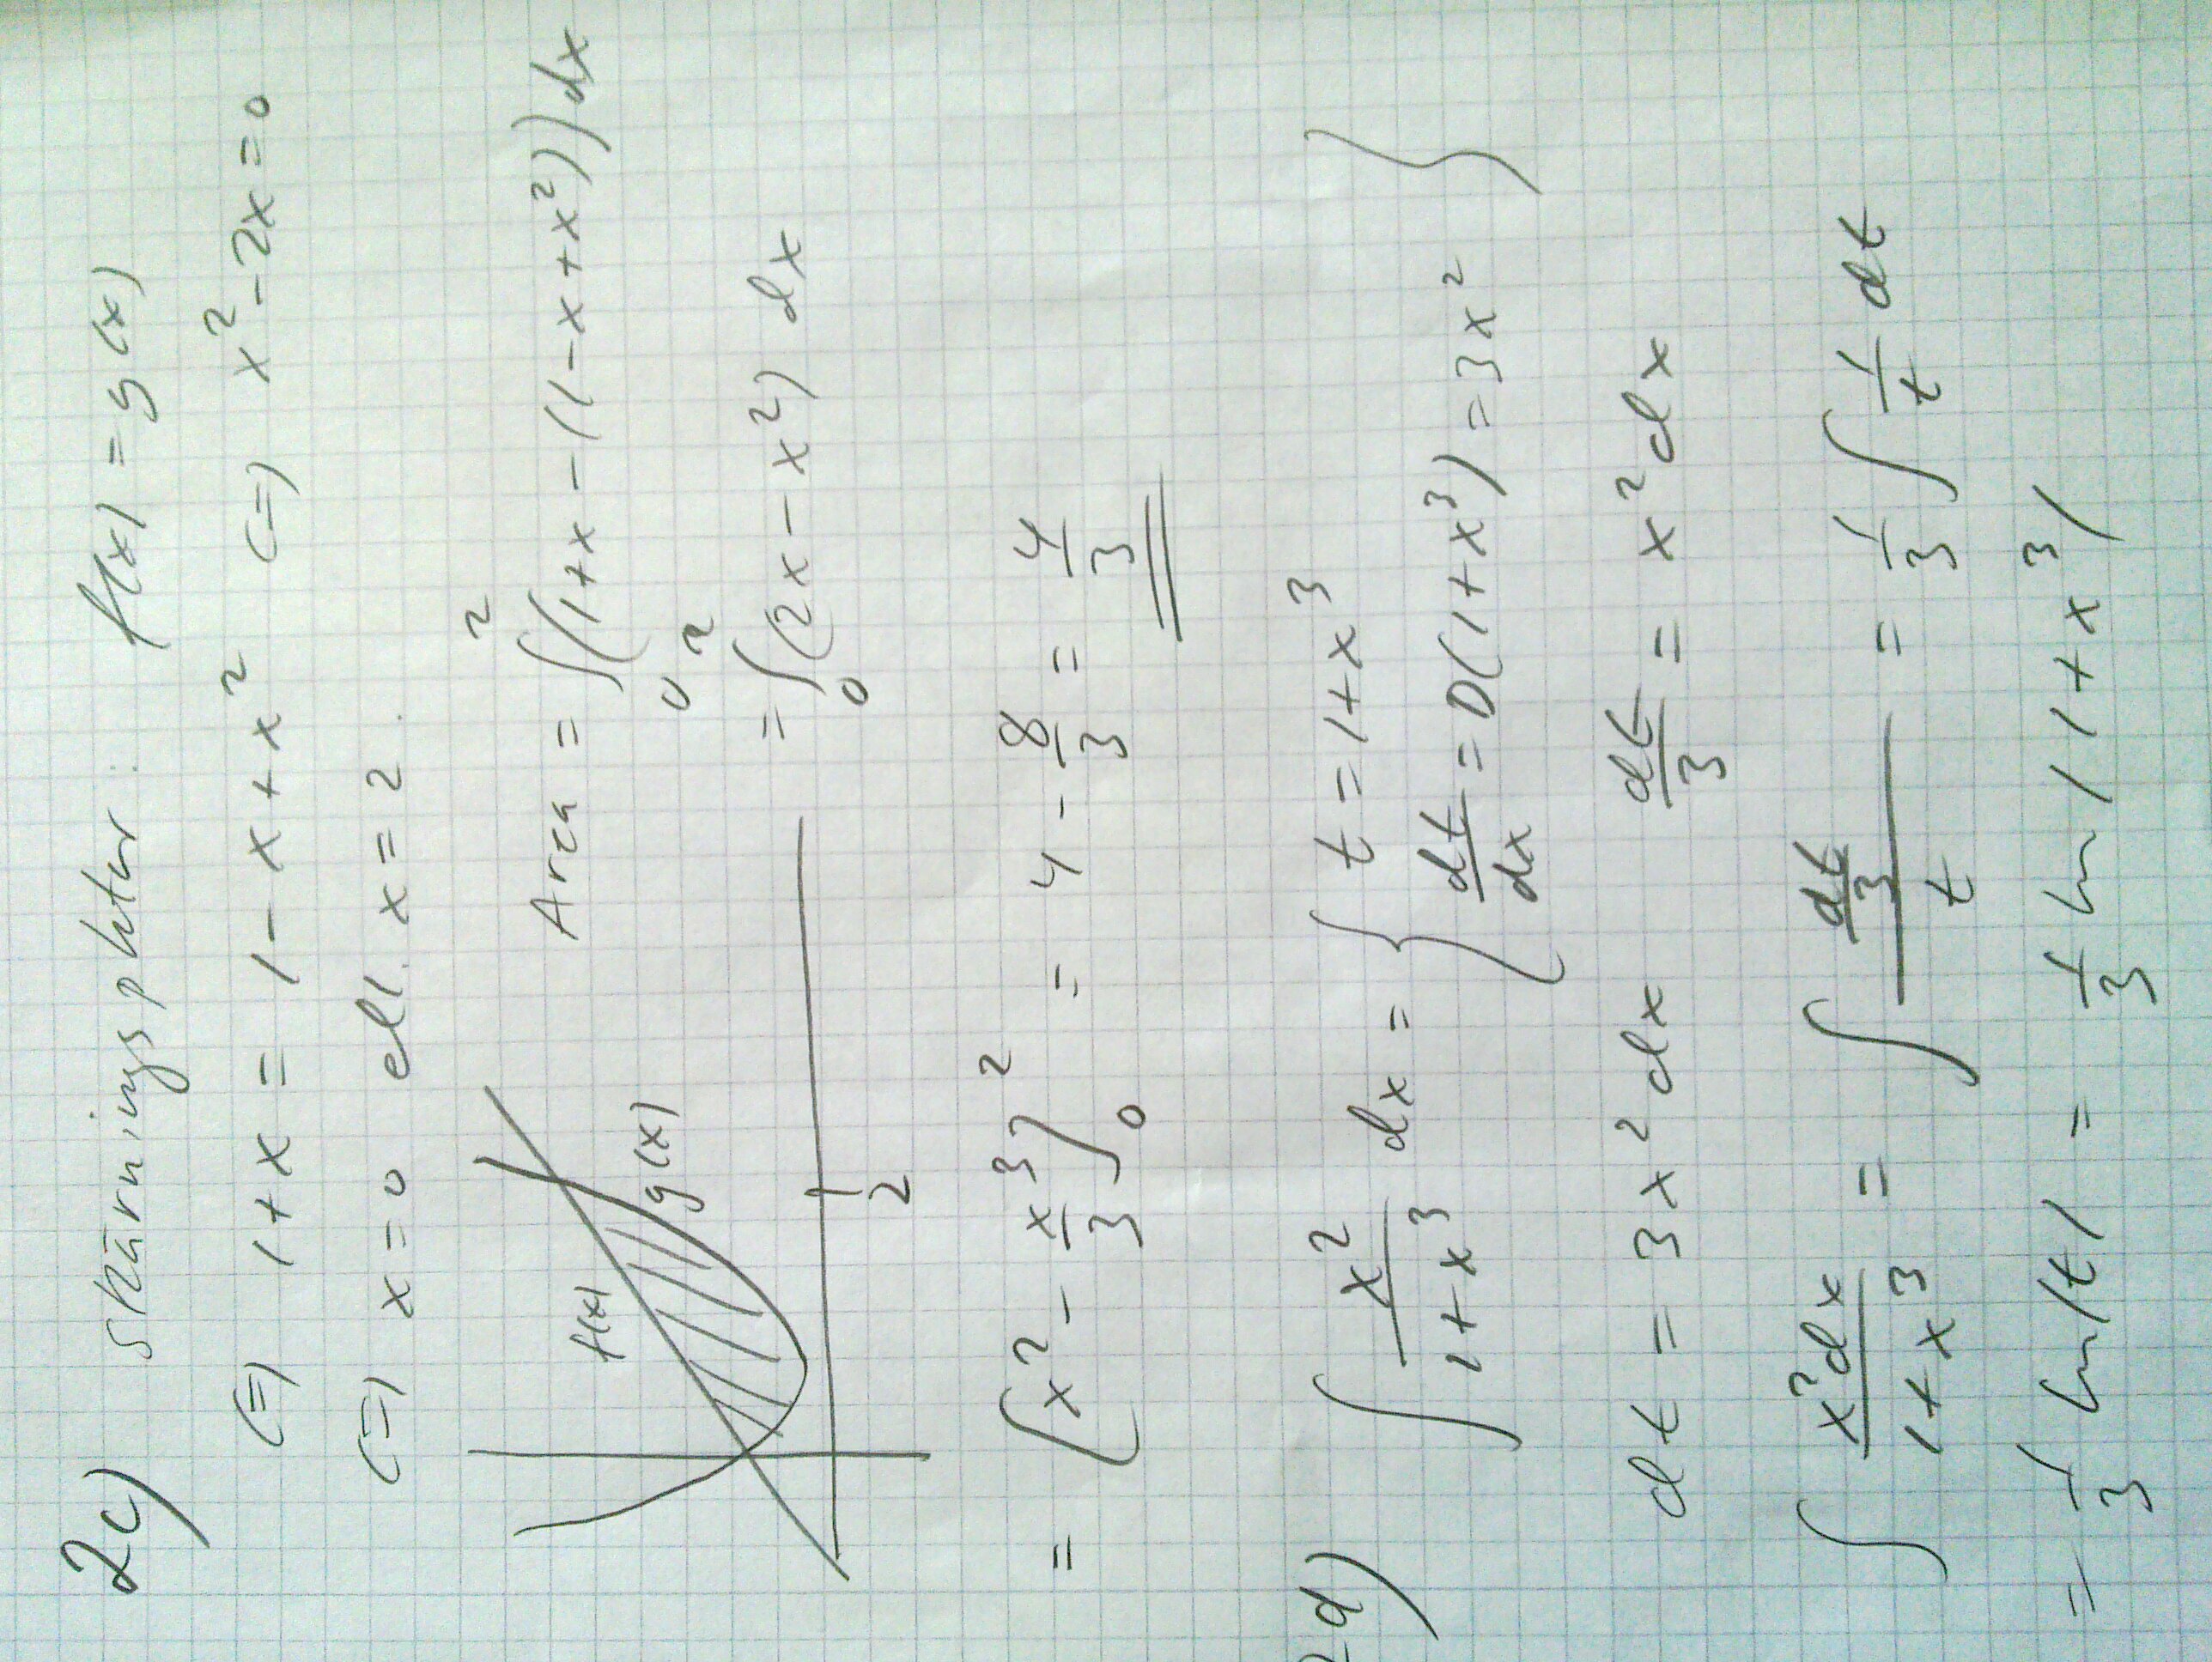 2c) Skärningspkter: f(x) = g(x)
<=> 1+x = 1-x+x² <=> x²-2x=0
<=> x=0 ell. x=2.
Area = ∫₀²(1+x-(1-x+x²))dx
f(x)
g(x)
2
= ∫₀²(2x-x²)dx
= [x² - x³/3]₀² = 4 - 8/3 = 4/3
2d) ∫ x²/(1+x³) dx = { t = 1+x³
dt/dx = D(1+x³) = 3x² }
dt = 3x²dx dt/3 = x²dx
∫ x²dx/(1+x³) = ∫ (dt/3)/t = 1/3 ∫ 1/t dt
= 1/3 ln|t| = 1/3 ln|1+x³|